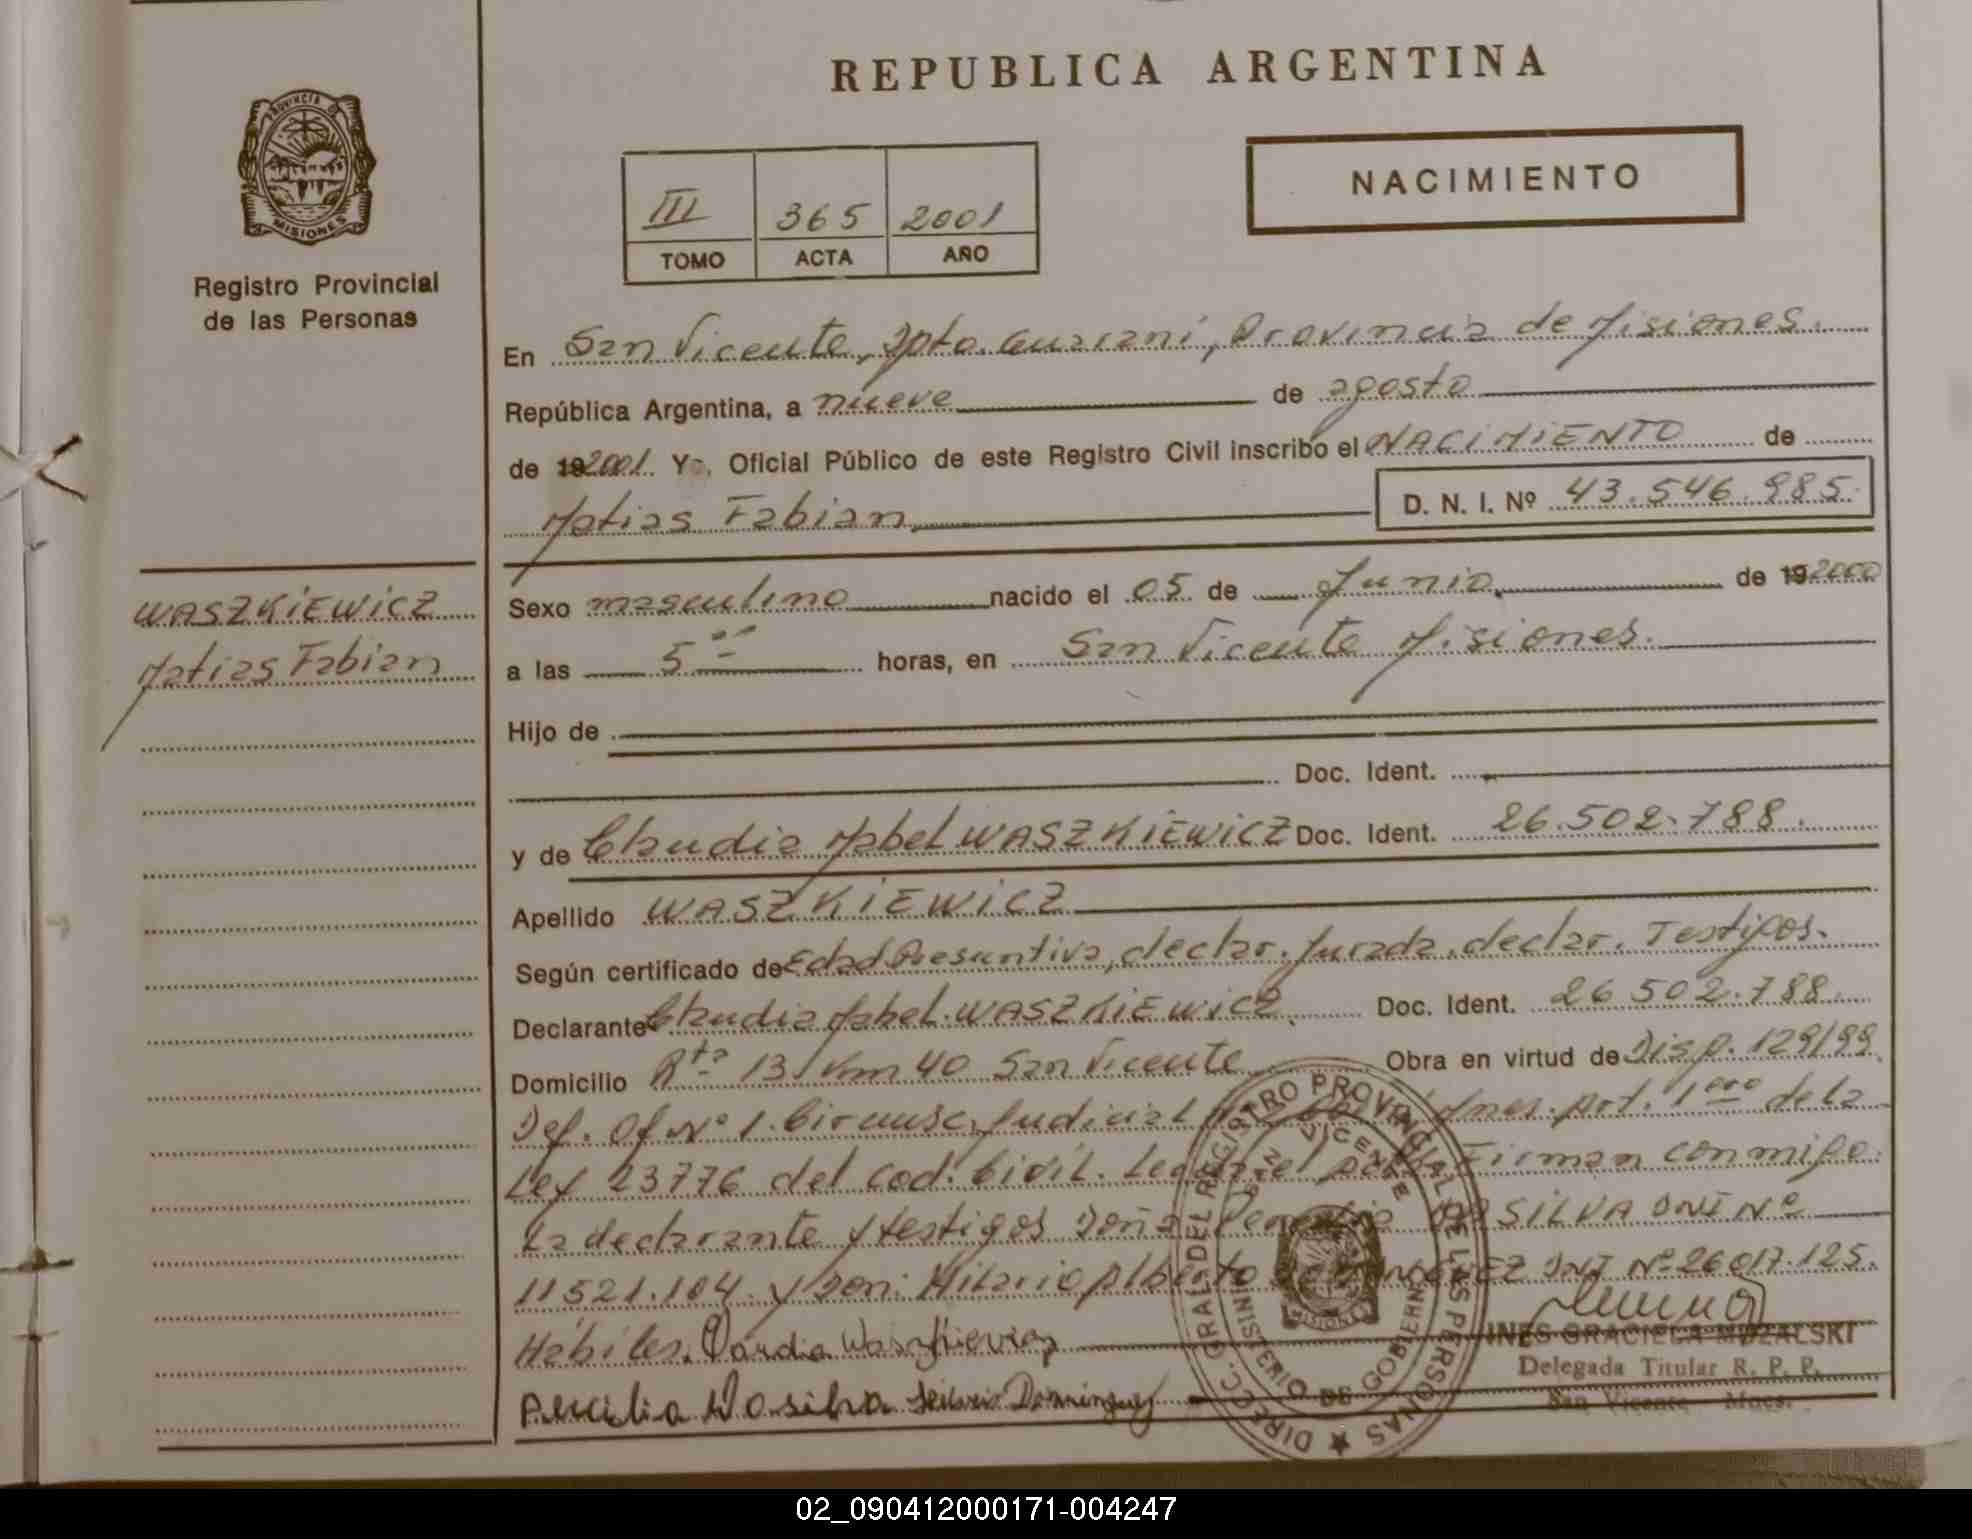 REPUBLICA ARGENTINA
PROVINCIA DE
MISIONES
Registro Provincial
de las Personas
NACIMIENTO
III 365 2001
TOMO ACTA AÑO
En San Vicente, Dpto. Guarani, Provincia de Misiones.
República Argentina, a nueve de agosto
de 192001. Yo, Oficial Público de este Registro Civil inscribo el NACIMIENTO de
Matias Fabian D. N. I. Nº 43.546.985.
WASZKIEWICZ
Matias Fabian
Sexo masculino nacido el 05 de Junio de 192000
a las 5 horas, en San Vicente Misiones.
Hijo de
Doc. Ident.
y de Claudia Mabel WASZKIEWICZ Doc. Ident. 26.502.788.
Apellido WASZKIEWICZ
Según certificado de Edad Presuntiva, declar. Jurada. declar. Testigos.
Declarante Claudia Mabel. WASZKIEWICZ. Doc. Ident. 26 502.788.
Domicilio Rta 13 Km 40 San Vicente Obra en virtud de Disp. 129/99
Def. Of Nº 1. Circunsc. Judicial de la
Ley 23776 del cod. Civil. Firman conmigo
la declarante y testigos Doña SILVA DNI Nº
11521.104. y Don: Hilario Alberto DNI Nº 26017.125.
Hábiles.
DIRECC. GRAL. DEL REGISTRO PROVINCIAL DE LAS PERSONAS
SAN VICENTE
MINISTERIO DE GOBIERNO
MISIONES
INES GRACIELA MUZALSKI
Delegada Titular R. P. P.
San Vicente Mnes.
02_090412000171-004247